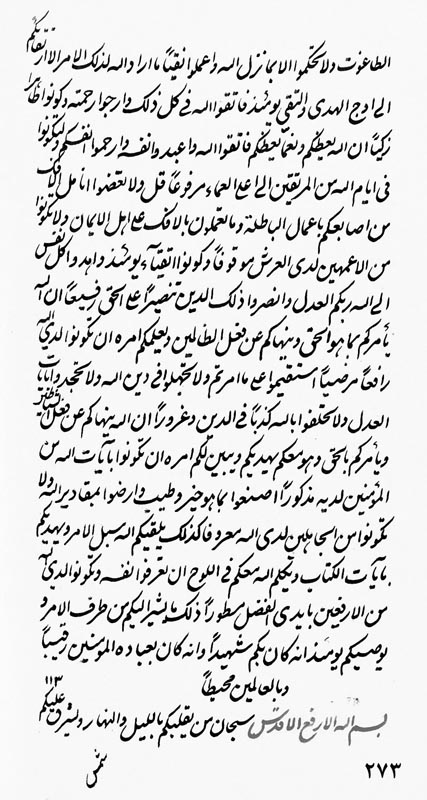 الطاغوت ولا تحکموا الا بما نزل الله واعملوا نقیّاً ما اراد الله لذلک الامر الا ارتقائکم
الی اوج الهدی والتقی یومئذ فاتقوا الله فی کل ذلک وارجوا رحمته وکونوا طاهراً
زکیّاً ان الله یعظکم ونعمّا یعظکم فاتقوا الله واعبدوا نفسه وارحموا انفسکم ولتکونوا
فی ایام الله من المرتقین الی اعلی العماء مرفوعاً قل ولا تعضوا انامل الافک
من اصابعکم باعمال الباطلة وما تعملون بالافک علی اهل الایمان ولا تکونوا
من الاعمهین لدی العرش موقوفاً وکونوا اتقیآء یومئذ واهدوا کل نفس
الی الله ربکم العدل وانصروا ذلک الدین تنصیراً علی الحق رفیعاً ان الله
یأمرکم بما هو الحق وینهاکم عن فعل الظالمین ویعلمکم امره ان تکونوا لدی الله
رافعاً مرضیاً استقیموا علی ما امرتم ولا تجهلوا فی دین الله ولا تجحدوا بآیات
العدل ولا تحلفوا بالله کذباً فی الدین وغروراً ان الله ینهاکم عن فعل
ویأمرکم بالحق وهو معکم یهدیکم ویبین لکم امره ان تکونوا بآیات الله من
المؤمنین لدیه مذکوراً اصنعوا بما هو خیر وطیب وارضوا بمقادیر الله ولا
تکونوا من الجاهلین لدی الله معروفا کذلک یلقیکم الله سبل الامر ویهدیکم
بآیات الکتاب ویحکم الله معکم فی اللوح ان تعرفوا نفسه وتکونوا لدی الله
من الارفعین بایدی الفضل مسطوراً ذلک ما یشیر الیکم من طرف الامر و
یوصیکم یومئذ انه کان بکم شهیداً وانه کان بعباده المؤمنین رقیباً
وبالعالمین محیطاً
۱۱۳
بسم الله الارفع الاقدس سبحان من یقلبکم باللیل والنهار ویشرق علیکم
۲۷۳